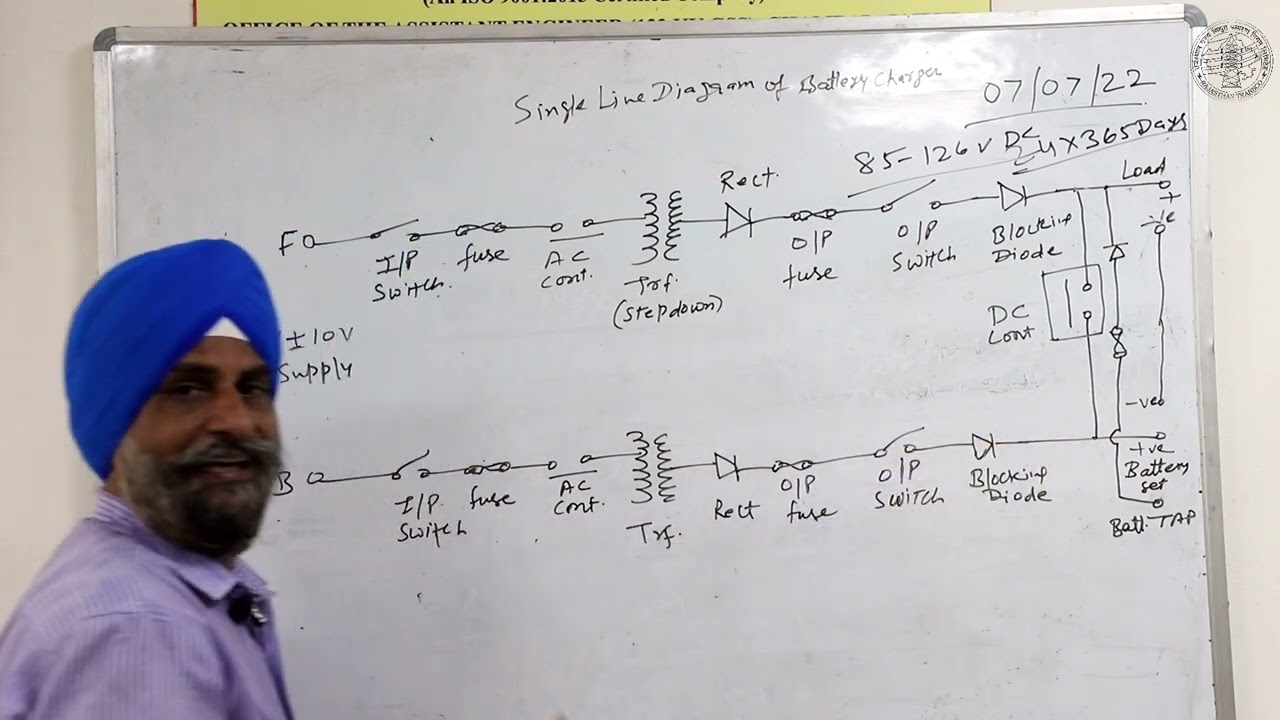 (An ISO 9001:2015 Certified Company)
OFFICE OF THE ASSISTANT ENGINEER
Single Line Diagram of Battery Charger
07/07/22
85-126 V DC
24X365 Days
Load
+
-ve
Rect.
F
I/P
Switch.
fuse
AC
Cont.
Trf.
(Stepdown)
O/P
fuse
O/P
Switch
Blocking
Diode
DC
Cont
±10V
Supply
-ve
B
I/P
Switch
fuse
AC
Cont.
Trf.
Rect
O/P
fuse
O/P
Switch
Blocking
Diode
+ve
Battery
set
Batt. TAP